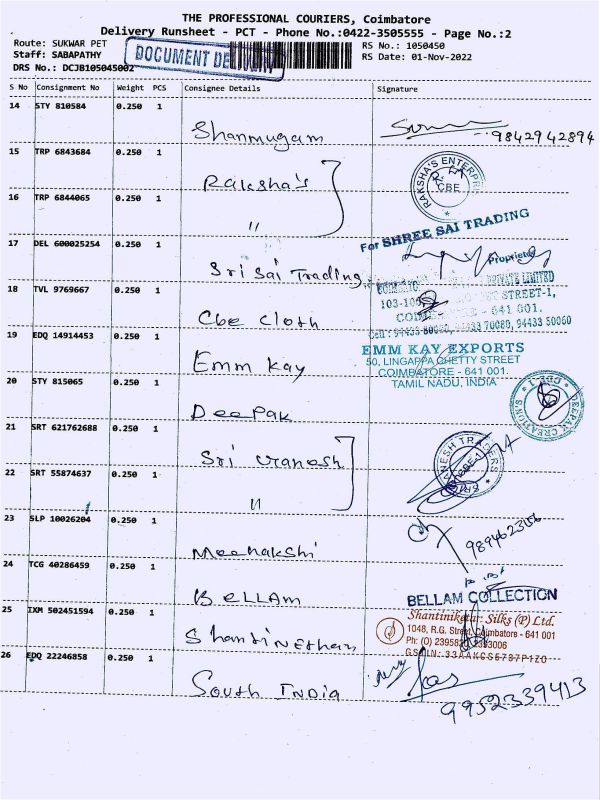 THE PROFESSIONAL COURIERS, Coimbatore
Delivery Runsheet - PCT - Phone No.:0422-3505555 - Page No.:2
Route: SUKWAR PET
RS No.: 1050450
Staff: SABAPATHY
DOCUMENT DELIVERY
RS Date: 01-Nov-2022
DRS No.: DCJB105045002
S No Consignment No Weight PCS Consignee Details Signature
14 STY 810584 0.250 1
Shanmugam
9842942894
15 TRP 6843684 0.250 1
Raksha's
RAKSHA'S ENTERPRI
CBE
16 TRP 6844065 0.250 1
"
17 DEL 600025254 0.250 1
Sri Sai Trading
For SHREE SAI TRADING
Proprietor
18 TVL 9769667 0.250 1
Cbe Cloth
PRIVATE LIMITED
STREET-1,
641 001.
94433 50060
19 EDQ 14914453 0.250 1
Emm Kay
EMM KAY EXPORTS
50, LINGAPPA CHETTY STREET
COIMBATORE - 641 001.
TAMIL NADU, INDIA
20 STY 815065 0.250 1
Deepak
DEEPAK CREATIONS
21 SRT 621762688 0.250 1
Sri Ganesh
22 SRT 55874637 0.250 1
"
23 SLP 10026204 0.250 1
Meenakshi
24 TCG 40286459 0.250 1
Bellam
BELLAM COLLECTION
25 IXM 502451594 0.250 1
Shantinethan
Shantiniketan Silks (P) Ltd.
1048, R.G. Street, Coimbatore - 641 001
26 EDQ 22246858 0.250 1
South India
9952339413